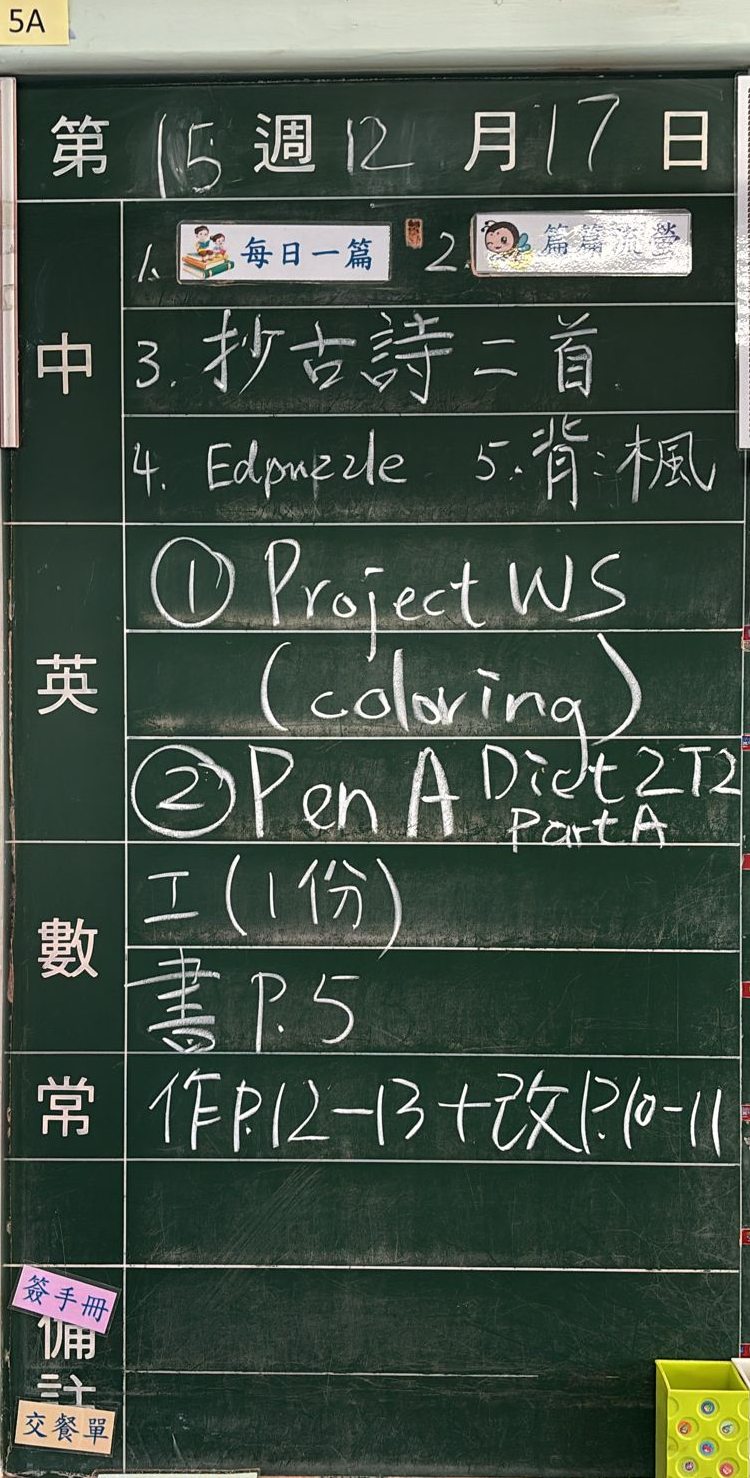 5A
第 15 週 12 月 17 日
中
1. 每日一篇 2. 篇篇流螢
3. 抄古詩二首
4. Edpuzzle 5. 背：楓
英
① Project WS
(coloring)
② Pen A Dict 2T2
Part A
數
工(1份)
書 P.5
常
作P.12-13+改P.10-11
簽手冊
備註
交餐單